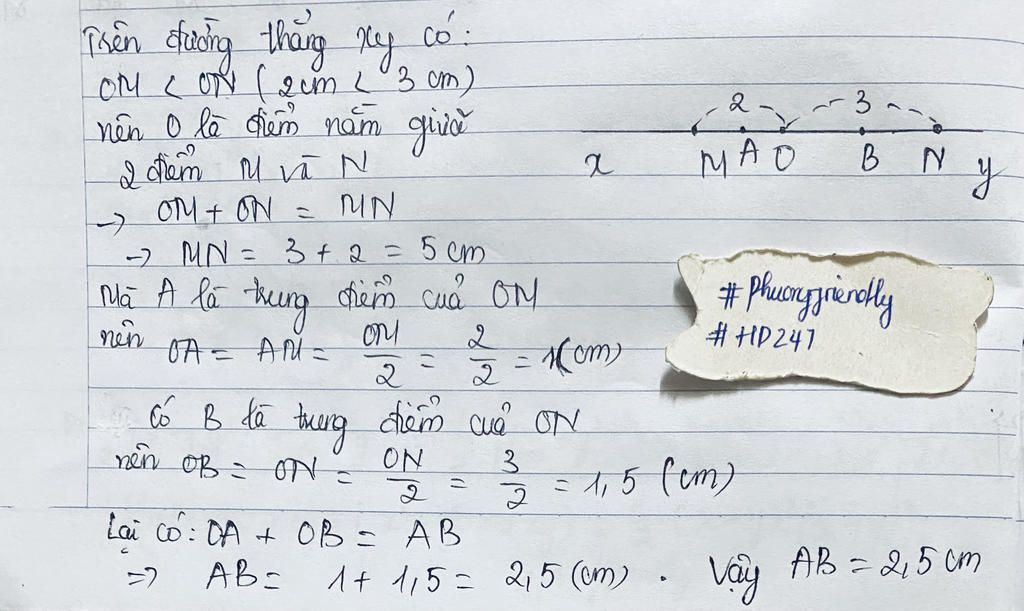 Trên đường thẳng xy có:
OM < ON (2cm < 3 cm)
nên O là điểm nằm giữa
2 điểm M và N
→ OM + ON = MN
→ MN = 3 + 2 = 5 cm
Mà A là trung điểm của OM
nên OA = AM = OM/2 = 2/2 = 1(cm)
Có B là trung điểm của ON
nên OB = ON = ON/2 = 3/2 = 1,5 (cm)
Lại có: OA + OB = AB
=> AB = 1 + 1,5 = 2,5 (cm). Vậy AB = 2,5 cm
2 3
x M A O B N y
#Phuongfriendly
#HD247